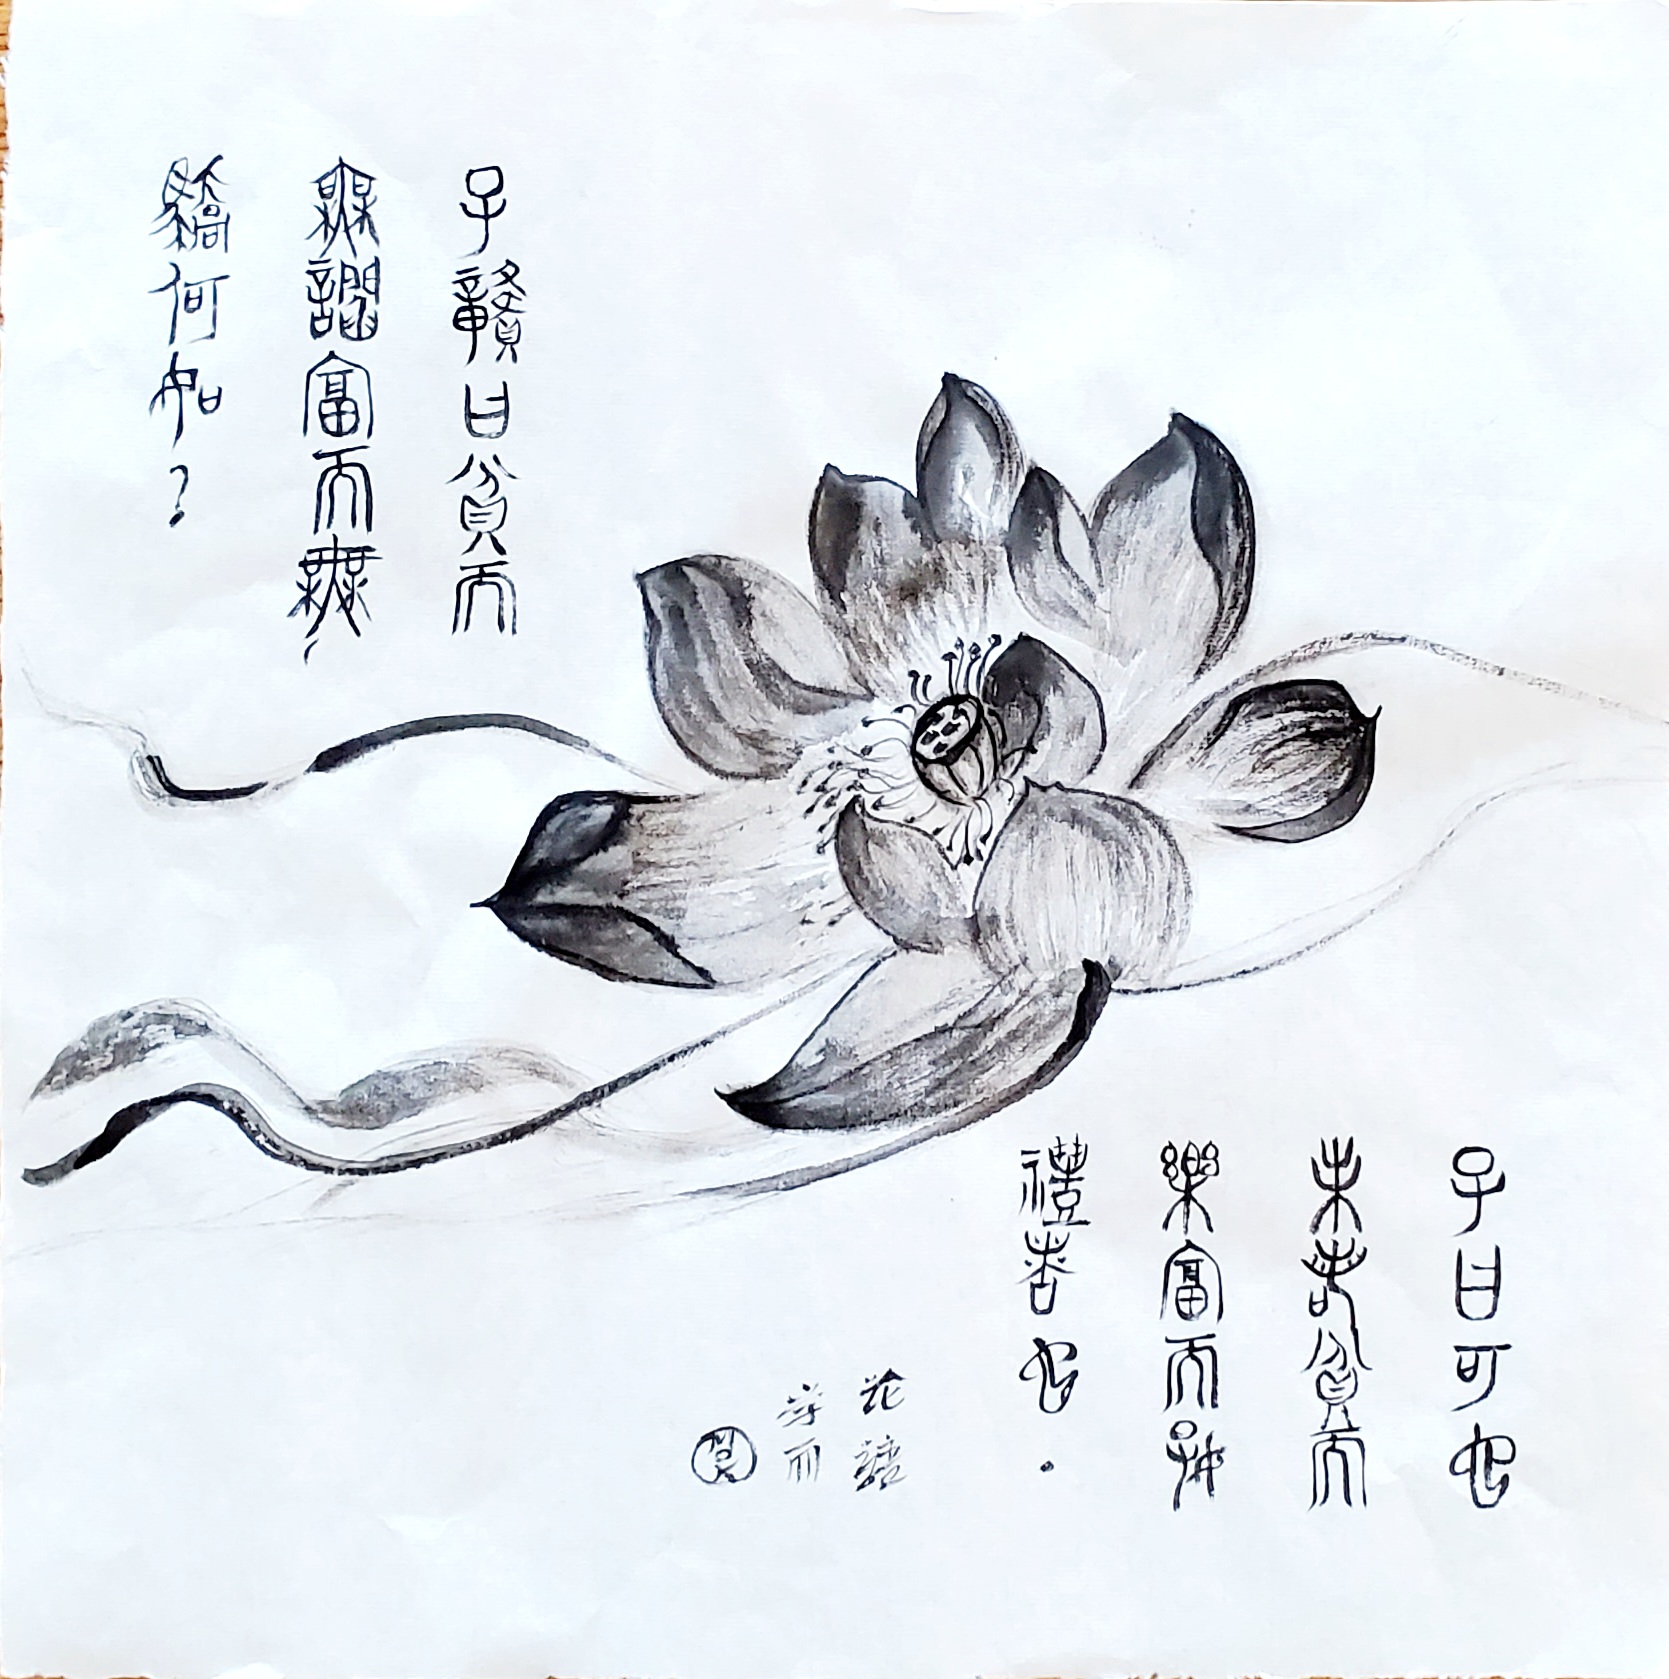 子贛曰貧而
無讇富而無
驕何如？
子曰可也
未若貧而
樂富而好
禮者也．
論語
學而